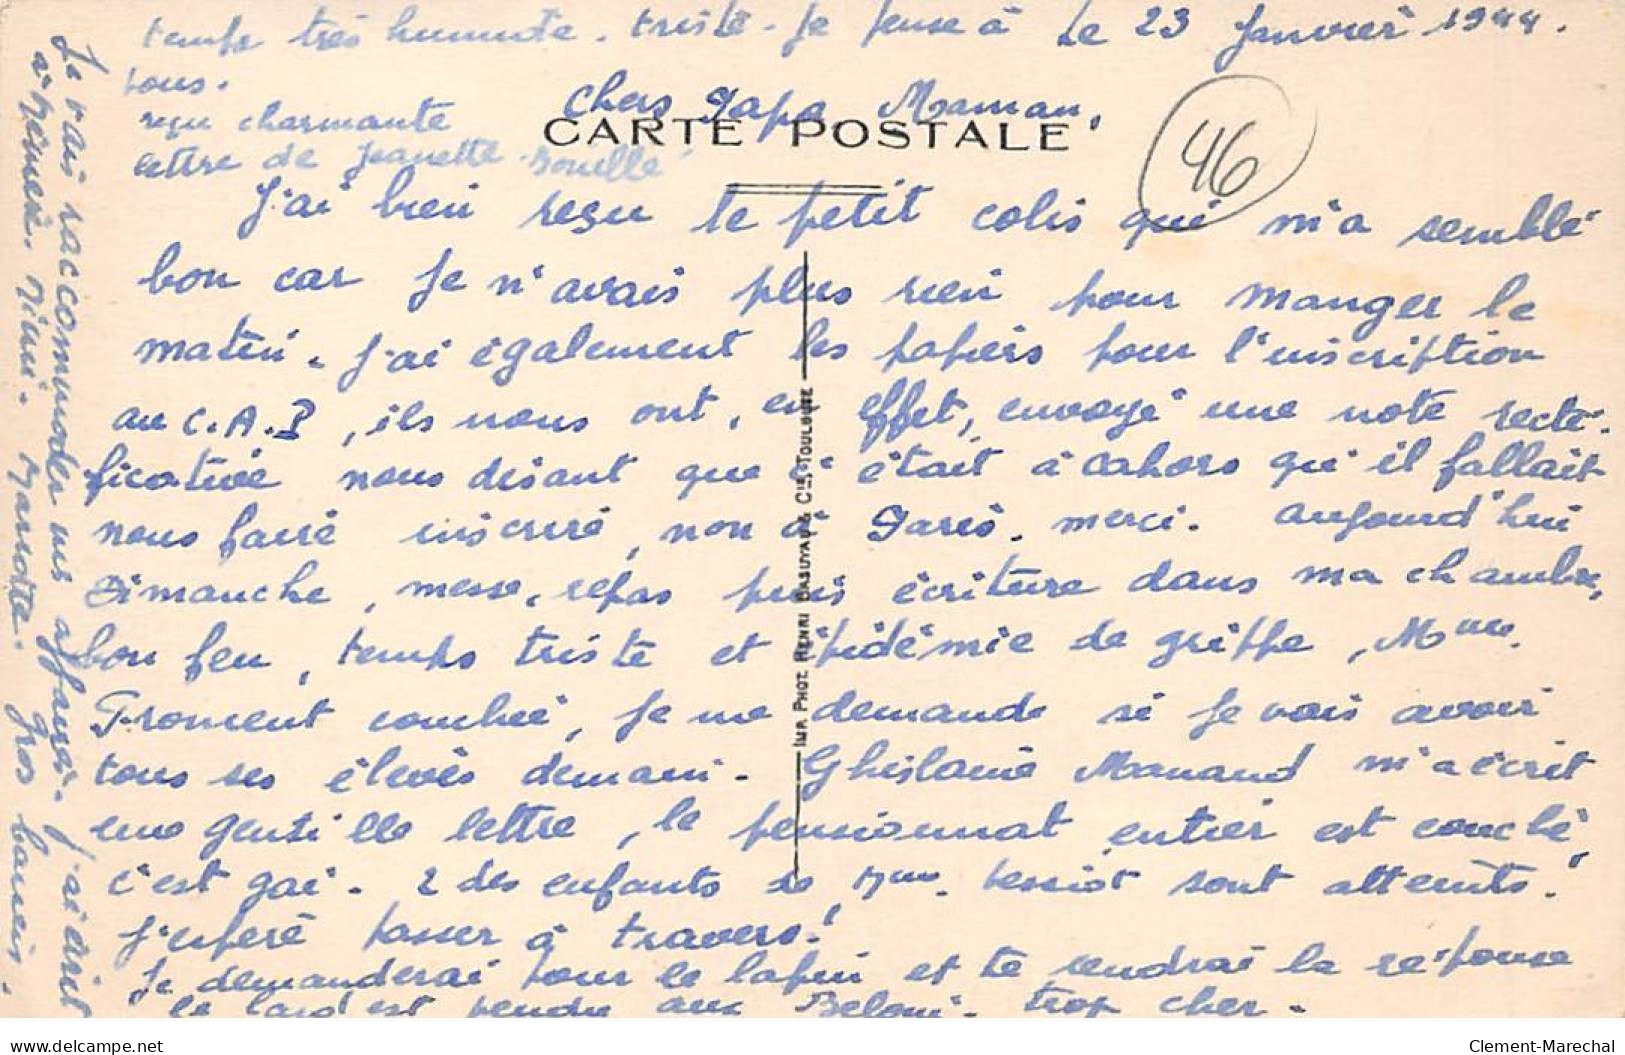 Le 23 Janvier 1944.
temps très humide. triste. je pense à
tous.
reçu charmante
lettre de Jeanette
Chers Papa Maman,
CARTE POSTALE
46
J'ai bien reçu le petit colis qui m'a semblé
bon car je n'avais plus rien pour manger le
matin. J'ai également les papiers pour l'inscription
au C.A.P, ils nous ont, en effet, envoyé une note recti-
ficative nous disant que c'était à Cahors qu'il fallait
nous faire inscrire, non à Paris. merci. aujourd'hui
Dimanche, messe, repas puis écriture dans ma chambre,
bon feu, temps triste et épidémie de grippe, Mme
Froment couchée, je me demande si je vais avoir
tous ses élèves demain. Ghislaine Manaud m'a écrit
une gentille lettre, le pensionnat entier est couché,
c'est gai. 2 des enfants de Mme Tessiot sont atteints!
J'espère passer à travers!
Je demanderai pour le lapin et te rendrai la réponse
le lard est vendu aux trop cher.
Je vais raccommoder mes affaires. J'ai écrit
à Gros baisers.
IMP. PHOT. HENRI BASUYAU & CIE, TOULOUSE
Clement-Marechal